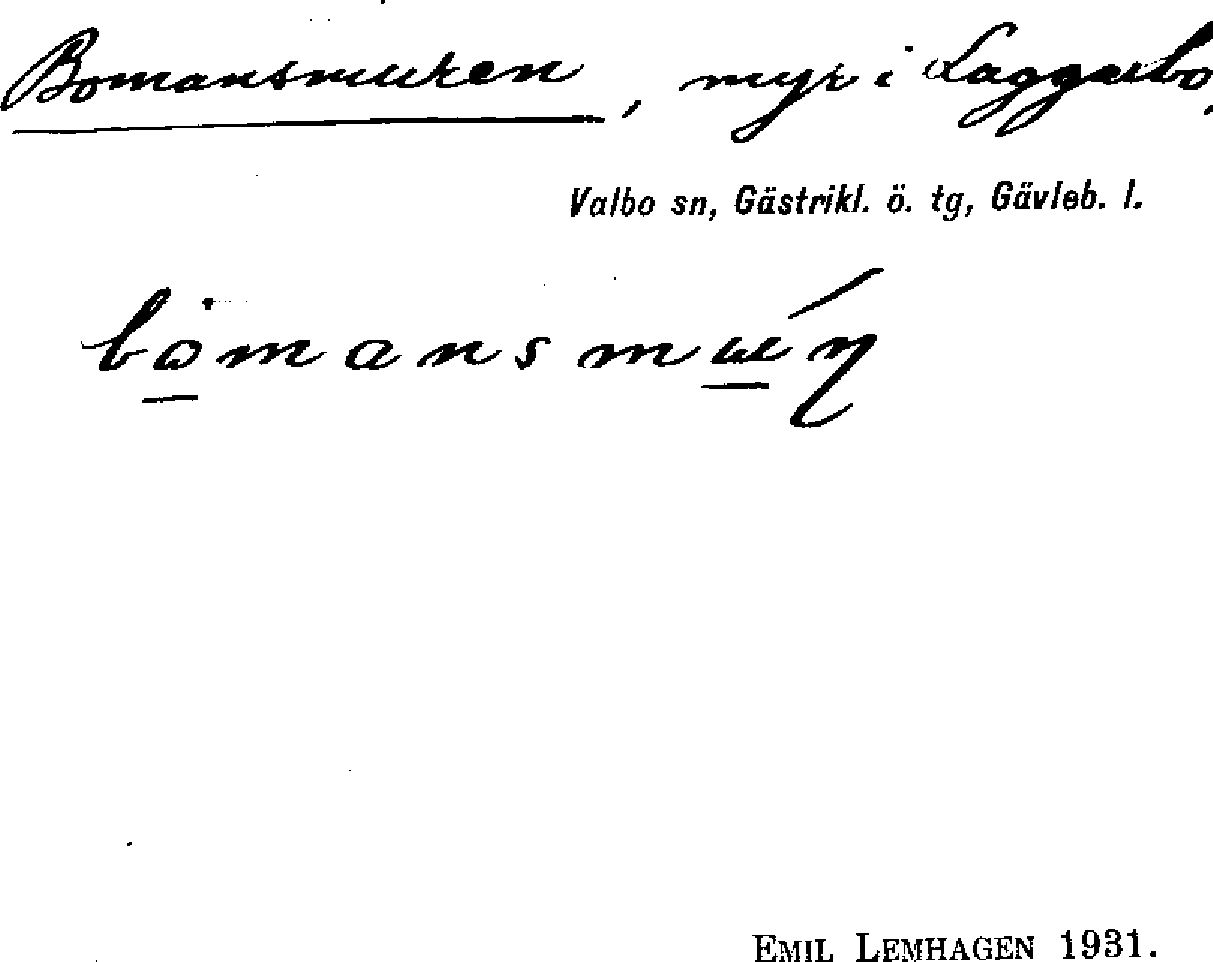 Bomansmuren, myr i Laggarbo,
Valbo sn, Gästrikl. ö. tg, Gävleb. l.
EMIL LEMHAGEN 1931.